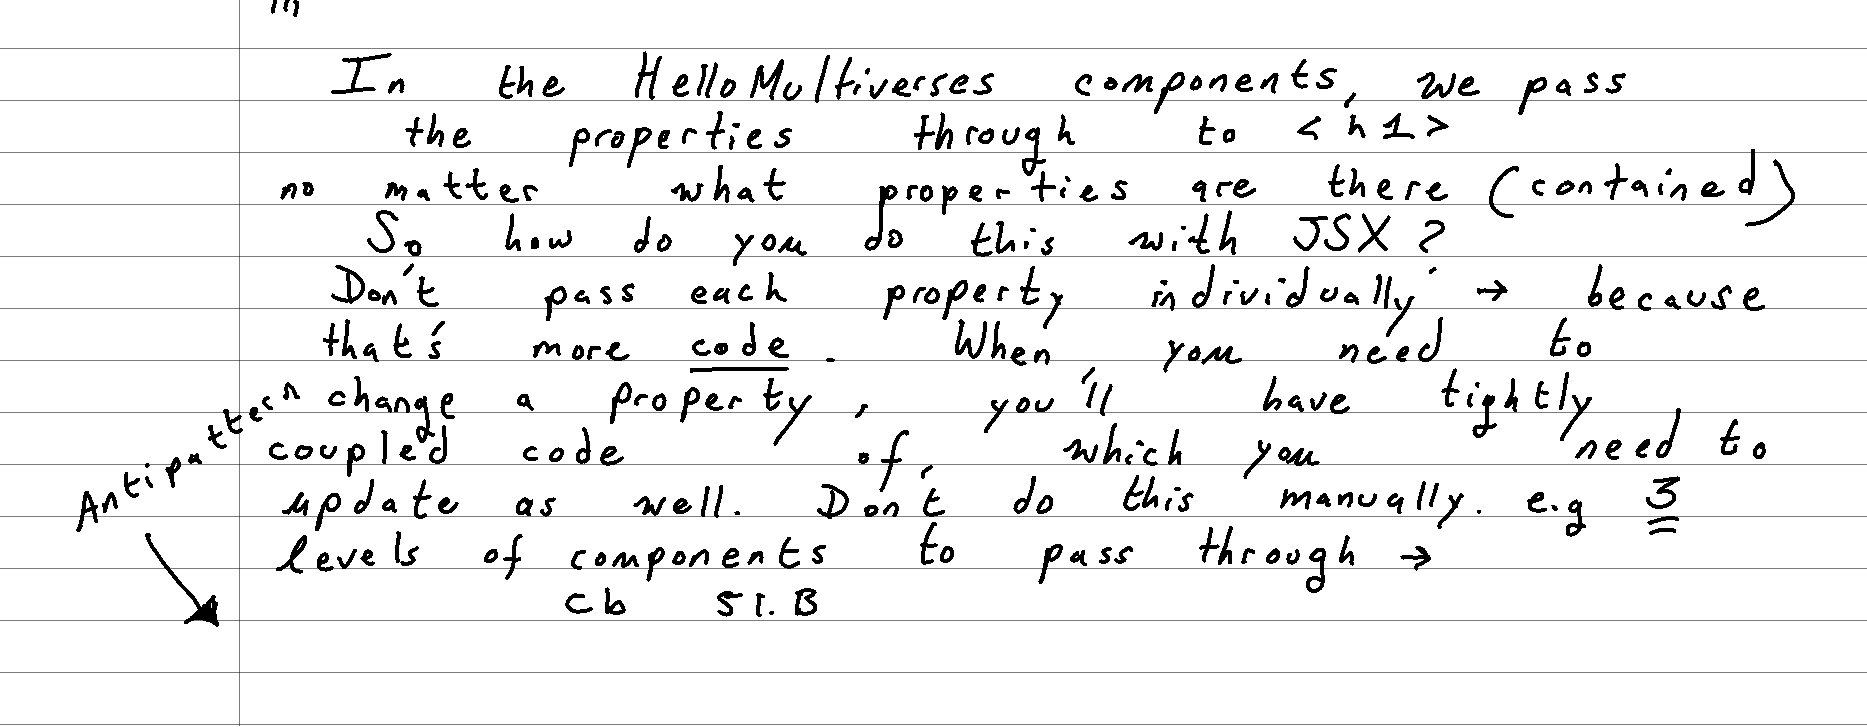 In the HelloMultiverses components, we pass
the properties through to <h1>
no matter what properties are there (contained)
So how do you do this with JSX?
Don't pass each property individually → because
that's more code. When you need to
change a property, you'll have tightly
coupled code of, which you need to
update as well. Don't do this manually. e.g 3
levels of components to pass through →
cb 51.B
Antipattern